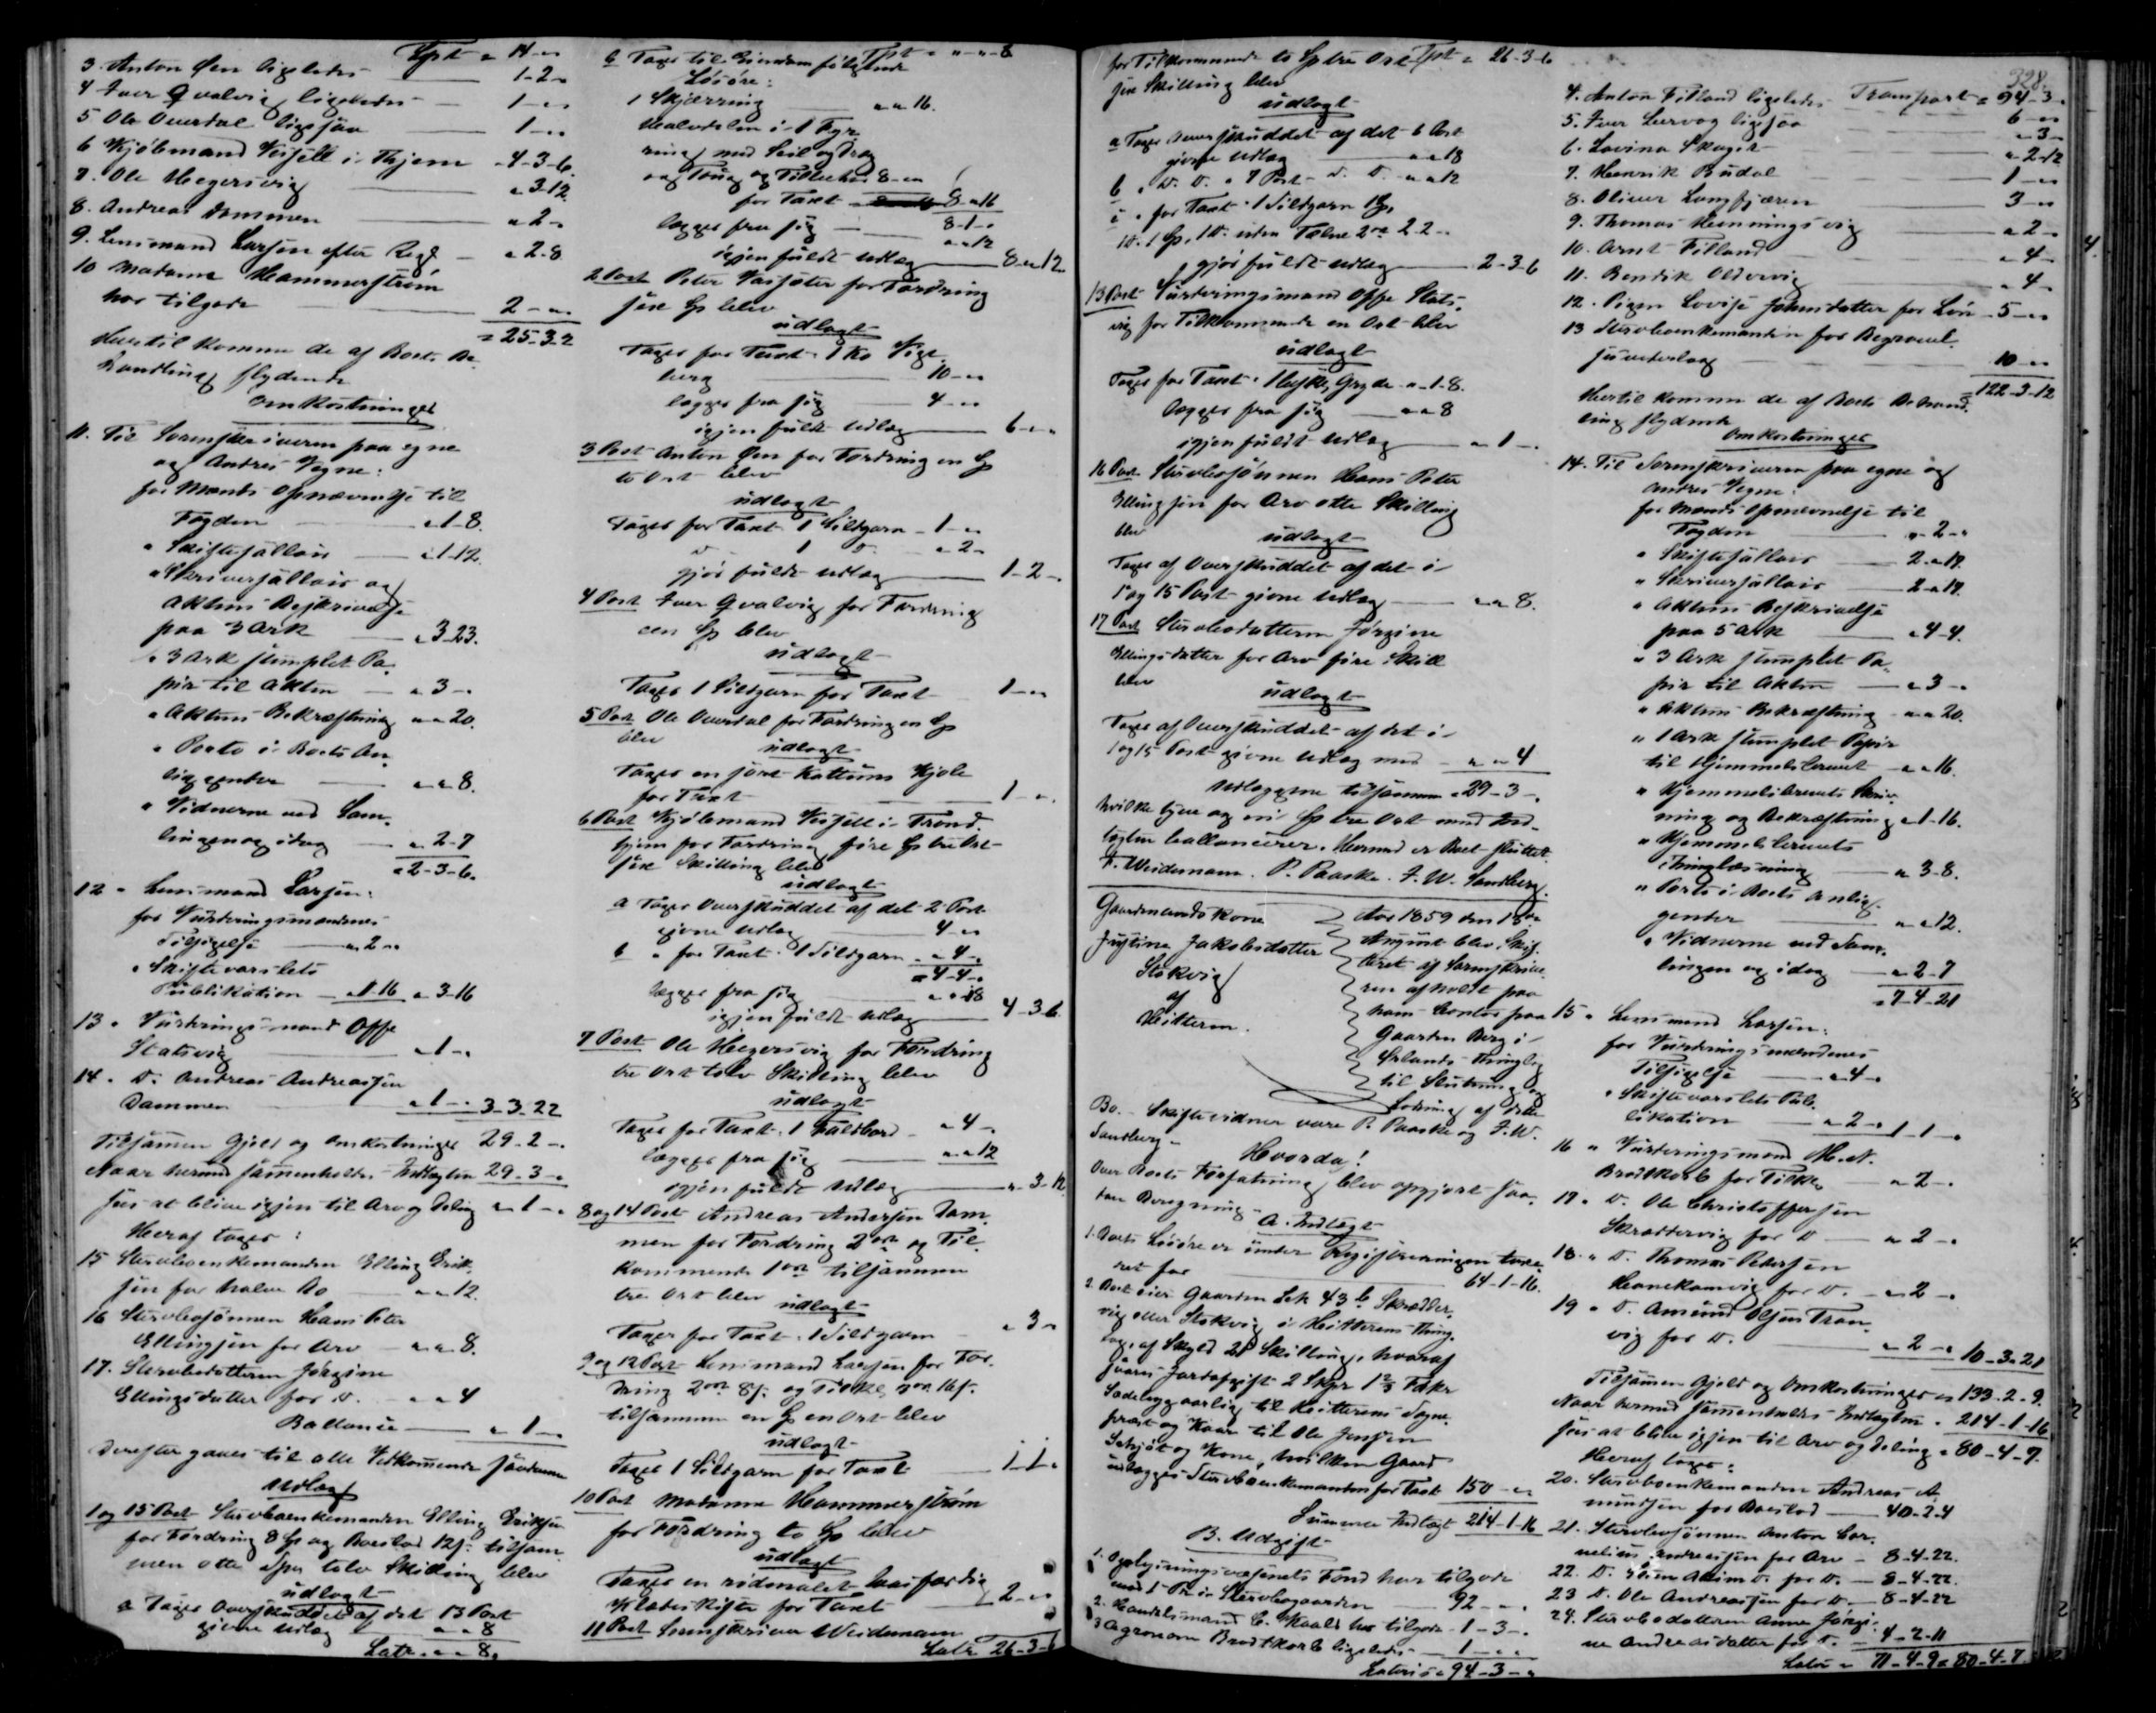 Tpt = 14-"-
3. Anton Øen ligeledes 1-2-
4 Iver Qvalvig ligeledes 1-"-
5 Ole Ouerdal ligesaa 1-"-
6 Kjøbmand Vessell i Thjem " 4-3-6.
7. Ole Heggersvig " 3-12.
8. Andreas Dammen " 2-
9. Lensmand Larsen efter Regg " 2-8
10 Madame Hammerstrøm
har tilgode 2-"-
= 25-3-2
Hertil komme de af Boets Be-
handling flydende
Omkostninger
11. Til Sorenskriveren paa egne
og Andres Vegne:
for Mænds Opnævnelse til
Fogden " 1-8.
" Skiftesallair " 1-12.
" Skriversallair og
Aktens Beskrivelse
paa 3 Ark " 3-23.
" 3 Ark stemplet Pa-
pir til Akten " 3-"
" Aktens Bekræftning " " 20.
" Porto i Boets An-
liggender " " 8.
" Vidnerne ved Sam-
lingen og idag " 2-7
= 2-3-6.
12 " Lensmand Larsen:
for Vurderingsmændenes
Tilsigelse " 2 "
" Skiftevarslets
Publikation " 1-16 " 3-16
13 " Vurderingsmand Offe
Statsvig " 1-"
14 " D. Andreas Andreassen
Dammen " 1-" 3-3-22
Tilsammen Gjeld og Omkostninger 29-2-"
Naar hermed sammenholdes Indtægten 29-3-"
sees at blive igjen til Arv og Deling " 1-"
Heraf tages:
15 Stervboenkemanden Elling Erik-
sen for halve Bo " " 12.
16 Stervbosønnen Hans Peter
Ellingsen for Arv " " 8.
17. Stervbodatteren Jørgine
Ellingsdatter for D. " " 4
Ballance " 1-"
Derefter gaves til alle Vedkommende saadanne
Udlæg
1 og 15 Post Stervboenkemanden Elling Eriksen
for Fordring 8 Sp og Boeslod 12 s. tilsam-
men otte Spd. tolv Skilling blev
udlagt
a Tages Overskuddet af det 13 Post
givne Udlæg " " 8
Latr. " " 8.
Tpt = "-"-8
b Tages til Eiendom følgende
Løsøre:
1 Skjærring " " 16.
Halvdelen i 1 Fyr
ring med Seil og Dræg
og Toug og Tilbehør 8-"
for Taxt 8 " 16
8-1-"
lægges fra sig " " 12
igjen fuldt Udlæg 8 " 12.
2 Post Peter for Fordring
sex Sp blev
udlagt
Tages for Taxt 1 Ko
10-"-
lægges fra sig 4-"-
igjen fuldt Udlæg 6-"-
3 Post Anton Øen for Fordring en Sp
to Ort blev
udlagt
Tages for Taxt 1 Sildgarn 1-"-
D. 1 D. " 2-
gjør fuldt Udlæg 1-2-
4 Post Iver Qvalvig for Fordring
een Sp blev
udlagt
Tages 1 Sildgarn for Taxt 1-"-
5 Post Ole Ouerdal for Fordring en Sp
blev
udlagt
Tages en sort Kattuns Kjole
for Taxt 1-"-
6 Post Kjøbmand Vessell i Trond-
hjem for Fordring fire Sp tre Ort
sex Skilling blev
udlagt
a Tages Overskuddet af det 2 Post
givne Udlæg 4-"-
b " for Taxt 1 Sildgarn " 4-"
= 4-4-"
lægges fra sig " " 18
igjen fuldt Udlæg 4-3-6.
7 Post Ole Heggersvig for Fordring
tre Ort tolv Skilling blev
udlagt
Tages for Taxt 1 Faldbord " 4-
lægges fra sig " " 12
igjen fuldt Udlæg " 3-12
8 og 14 Post Andreas Andersen Dam-
men for Fordring 2 ort og Til-
kommende 1 ort tilsammen
tre Ort blev
udlagt
Tages for Taxt 1 Sildgarn " 3-
9 og 12 Post Lensmand Larsen for For-
dring 2 ort 8 s. og Tilk 3 ort 16 s.
tilsammen en Sp en Ort blev
udlagt
Tages 1 Sildgarn for Taxt 1-1-
10 Post Madame Hammerstrøm
for Fordring to Sp blev
udlagt
Tages en rødmalet
Klædeskiste for Taxt 2-"-
11 Post Sorenskriver Weidemann
Latr 26-3-6
for Tilkommende to Sp tre Ort Tpt = 26-3-6
sex Skilling blev
udlagt
a Tages Overskuddet af det 6 Post
givne Udlæg " " 18
b " D. D. " 7 Post D. D. " " 12
c " for Taxt 1 Sildgarn 1 Sp,
1 D. 1 Sp, 1 D. uden 2 ort 2-2-
gjør fuldt Udlæg 2-3-6
13 Post Vurderingsmand Offe Stats-
vig for Tilkommende en Ort blev
udlagt
Tages for Taxt 1 Gryde " 1-8.
lægges fra sig " " 8
igjen fuldt Udlæg " 1-"
16 Post Stervbosønnen Hans Peter
Ellingsen for Arv otte Skilling
blev
udlagt
Tages af Overskuddet af det i
1 og 15 Post givne Udlæg " " 8.
17 Post Stervbodatteren Jørgine
Ellingsdatter for Arv fire Skill
blev
udlagt
Tages af Overskuddet af det i
1 og 15 Post givne Udlæg med " " 4
Udlæggene tilsammen = 29-3-"
hvilke tyve og ni Sp tre Ort med Ind-
tægten ballancerer. Hermed er Boet sluttet.
F. Weidemann. P. Paaske. J. W. Sandberg.
Gaardmandskone
Justine Jakobsdatter
Stokvig
af
Hitteren.
Aar 1859 den 18de
August blev Skif-
teret af Sorenskrive-
ren afholdt paa
hans Contor paa
Gaarden Berg i
Ørlands Thinglag
til Slutning og
Lodning af dette
Bo. Skiftevidner vare P. Paaske og J. W.
Sandberg.
Hvorda!
Over Boets Forfatning blev opgjort saa-
dan Beregning
A. Indtægt
1. Boets Løsøre er under Registreringen taxe-
ret for 64-1-16.
2. Boet eier Gaarden Løb 43 b Skrædder-
vig eller Stokvig i Hitterens Thing-
lag, af Skyld 21 Skilling, hvoraf
svares Jordafgift 2 Skpr 1 2/3 Fdkr
Sædebyg aarlig til Hitterens Sogne-
præst og Kaar til Ole Jensen
og Kone, hvilken Gaard
udlægges Stervboenkemanden for Taxt 150-"-
Summa Indtægt 214-1-16
B. Udgift
1. Oplysningsvæsenets Fond har tilgode
med Pr. i Stervbogaarden 92-"-"
2. Handelsmand C. Kaald har tilgode 1-3-"
3 Agronom Brodtkorb ligeledes 1-"-"
Lateris = 94-3-"
328.
Transport = 94-3-
4. Anton Filland ligeledes 6-"-
5. Iver Lervog ligesaa " 3-
6. Lovina " 2-12
7. Henrik Budal 1-"-
8. Oliver Langfjæren 3-"-
9. Thomas Hennings vig " 2-
10. Arnt Filland " 4-
11. Bendik Oldervig " 4-
12. Pigen Lovise Johnsdatter for Løn 5-"-
13 Stervboenkemanden for Begravel-
sesudlæg 10-"-
= 122-3-12
Hertil komme de af Boets Behand-
ling flydende
Omkostninger
14. Til Sorenskriveren paa egne og
Andres Vegne:
for Mænds Opnævnelse til
Fogden " 2-"
" Skiftesallair 2 " 17.
" Skriversallair 2 " 17.
" Aktens Beskrivelse
paa 5 Ark " 4-4.
" 3 Ark stemplet Pa-
pir til Akten " 3-"
" Aktens Bekræftning " " 20.
" 1 Ark stemplet Papir
til Hjemmelsbrevet " " 16.
" Hjemmelsbrevets Skriv-
ning og Bekræftning " 1-16.
" Hjemmelsbrevets
Thinglæsning " 3-8.
" Porto i Boets Anlig-
gender " " 12.
" Vidnerne ved Sam-
lingen og idag " 2-7
= 7-4-21
15 " Lensmand Larsen:
for Vurderingsmændenes
Tilsigelse " 4-"
" Skiftevarslets Pub-
likation " 2-" 1-1-"
16 " Vurderingsmand M. N.
Brodtkorb for Tilkg " 2-"
17 " D. Ole Christoffersen
Skræddervig for D " 2-"
18 " D. Thomas Pedersen
Hanekamvig for D. " 2-"
19 " D. Amund Olsen Tran-
vig for D. " 2-" 10-3-21
Tilsammen Gjeld og Omkostninger = 133-2-9.
Naar hermed sammenholdes Indtægten 214-1-16
sees at blive igjen til Arv og Deling = 80-4-7.
Heraf tages:
20. Stervboenkemanden Andreas A-
mundsen for Boeslod 40-2-4
21. Stervbosønnen Anton Cor-
nelius Andreassen for Arv 8-4-22.
22. D. D. for D. 8-4-22.
23 D. Ole Andreassen for D. 8-4-22
24. Stervbodatteren Anne Jørgi-
ne Andreasdatter for D. 4-2-11
Latus = 71-4-9 = 80-4-7.